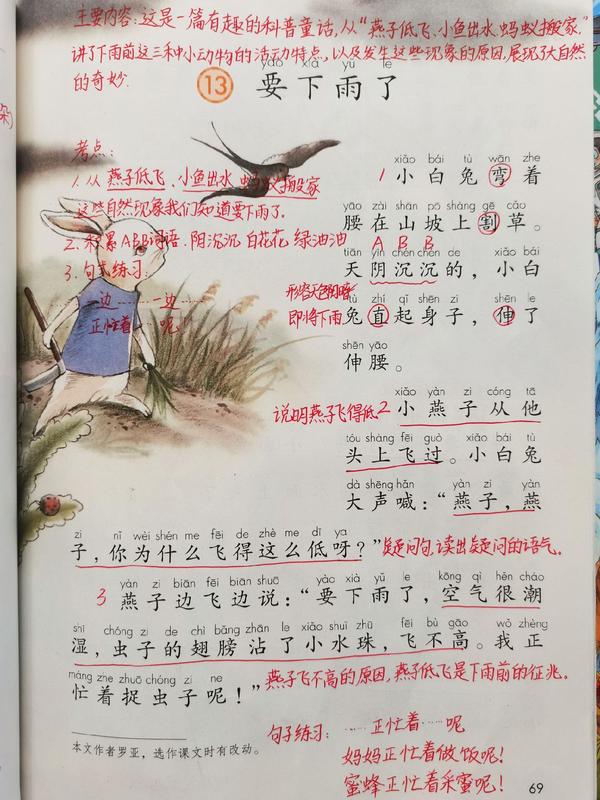 主要内容:这是一篇有趣的科普童话,从“燕子低飞、小鱼出水、蚂蚁搬家”
讲了下雨前这三种小动物的活动特点,以及发生这些现象的原因,展现了大自然
的奇妙.
yào xià yǔ le
13 要下雨了
考点:
1.从 燕子低飞、小鱼出水、蚂蚁搬家
这些自然现象我们知道要下雨了。
2.积累ABB词语:阴沉沉 白花花 绿油油
3.句式练习:
一边……一边
正忙着……呢!
xiǎo bái tù wān zhe
1 小白兔弯着
yāo zài shān pō shàng gē cǎo
腰在山坡上割草。
A B B
tiān yīn chén chén de
天阴沉沉的,小白
形容天色和暗
即将下雨
tù zhí qǐ shēn zi shēn le
兔直起身子,伸了
shēn yāo
伸腰。
xiǎo yàn zi cóng tā
说明燕子飞得低 2 小燕子从他
tóu shàng fēi guò xiǎo bái tù
头上飞过。小白兔
dà shēng hǎn yàn zi yàn
大声喊:“燕子,燕
zi nǐ wèi shén me fēi de zhè me dī ya
子,你为什么飞得这么低呀?”疑问句,读出疑问的语气。
yàn zi biān fēi biān shuō yào xià yǔ le kōng qì hěn cháo
3 燕子边飞边说:“要下雨了,空气很潮
shī chóng zi de chì bǎng zhān le xiǎo shuǐ zhū fēi bù gāo wǒ zhèng
湿,虫子的翅膀沾了小水珠,飞不高。我正
máng zhe zhuō chóng zi ne
忙着捉虫子呢!”燕子飞不高的原因,燕子低飞是下雨前的征兆。
句子练习: ……正忙着……呢
本文作者罗亚,选作课文时有改动。
妈妈正忙着做饭呢!
蜜蜂正忙着采蜜呢!
69